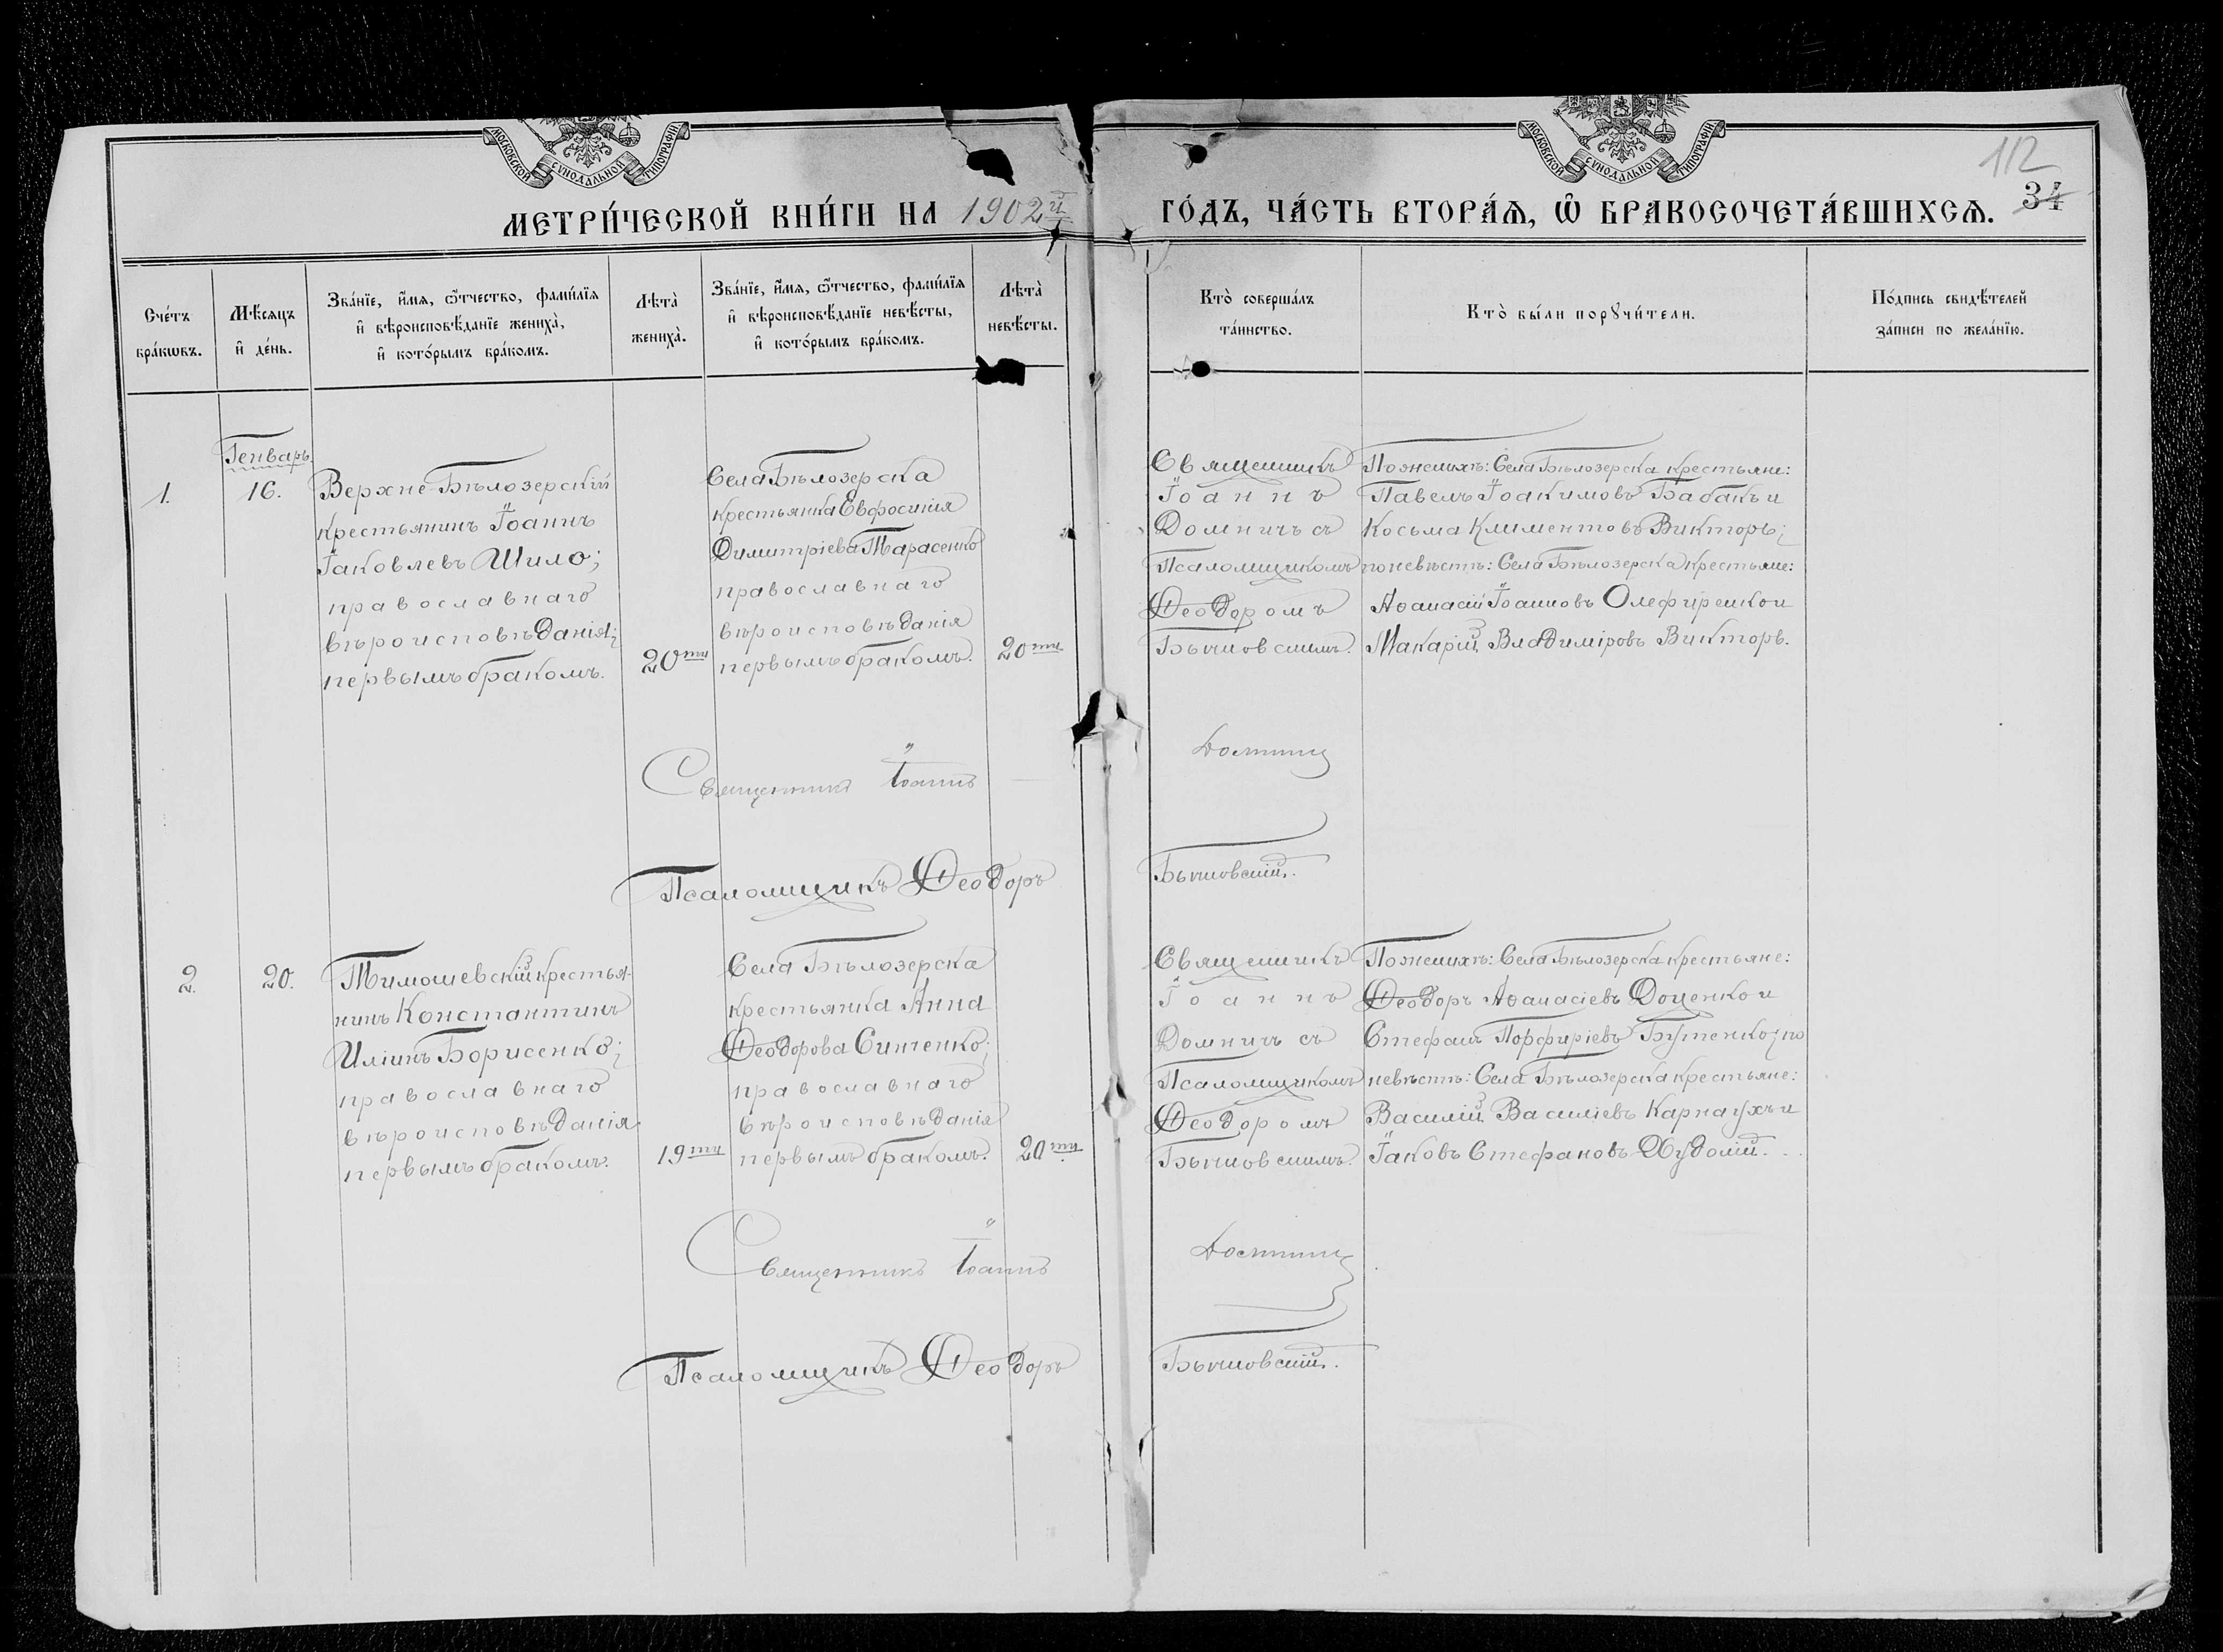 МОСКОВСКОЙ СѴНОДАЛЬНОЙ ТИПОГРАФІИ
МОСКОВСКОЙ СѴНОДАЛЬНОЙ ТИПОГРАФІИ
112
34
МЕТРИ́ЧЕСКОЙ КНИ́ГИ НА 1902й
ГО́ДЪ, ЧА́СТЬ ВТОРА́Ѧ, Ѿ БРАКОСОЧЕТА́ВШИХСѦ.
Сче́тъ
бра́кѡвъ.
Мѣ́сѧцъ
и҆ де́нь.
Зва́нїе, и҆́мѧ, ѻ҆́тчество, фамѝлїѧ
и҆ вѣроисповѣ́данїе жениха̀,
и҆ кото́рымъ бра́комъ.
Лѣта̀
жениха̀.
Зва́нїе, и҆́мѧ, ѻ҆́тчество, фамѝлїѧ
и҆ вѣроисповѣ́данїе невѣ́сты,
и҆ кото́рымъ бра́комъ.
Лѣта̀
невѣ́сты.
Кто̀ соверша́лъ
та́инство.
Кто̀ бы́ли порꙋчи́тели.
По́дпись свидѣ́телей
за́писи по жела́нїю.
Генварь.
1.
16.
Верхне-Бѣлозерскій
крестьянинъ Іоаннъ
Іаковлевъ Шило;
православнаго
вѣроисповѣданія;
первымъ бракомъ.
20ти
Села Бѣлозерска
крестьянка Евфросинія
Димитріева Тарасенко
православнаго
вѣроисповѣданія
первымъ бракомъ.
20ти
Священникъ
Іоаннъ
Домничъ съ
Псаломщикомъ
Ѳеодоромъ
Поженихѣ: Села Бѣлозерска крестьяне:
Павелъ Іоакимовъ Бабакъ и
Косьма Климентовъ Викторъ;
поневѣстѣ: Села Бѣлозерска крестьяне:
Аѳанасій Іоанновъ Олефиренко и
Макарій Владиміровъ Викторъ.
Священникъ Іоаннъ
Псаломщикъ Ѳеодоръ
2.
20.
Тимошевскій крестья-
нинъ Константинъ
Иліинъ Борисенко;
православнаго
вѣроисповѣданія
первымъ бракомъ.
19ти
Села Бѣлозерска
крестьянка Анна
Ѳеодорова Синченко;
православнаго
вѣроисповѣданія
первымъ бракомъ.
20ти
Священникъ
Іоаннъ
Домничъ съ
Псаломщикомъ
Ѳеодоромъ
Поженихѣ: Села Бѣлозерска крестьяне:
Ѳеодоръ Аѳанасіевъ Доценко и
Стефанъ Порфиріевъ Бутенко; по
невѣстѣ: Села Бѣлозерска крестьяне:
Василій Василіевъ Карнаухъ и
Іаковъ Стефановъ Худолій.
Священникъ Іоаннъ
Псаломщикъ Ѳеодоръ